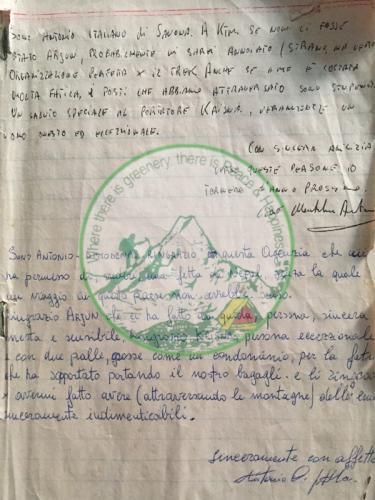 SONO ANTONIO ITALIANO DI SAVONA. A KTM. SE NON CI FOSSE
STATO ARJUN, PROBABILMENTE MI SAREI ANNOIATO (STRANO, MA VERO)
ORGANIZZAZIONE PERFETTA X IL TREK ANCHE SE A ME È COSTATA
MOLTA FATICA, I POSTI CHE ABBIAMO ATTRAVERSATO SONO STUPENDI.
UN SALUTO SPECIALE AL PORTATORE KAISHA, VERAMENTE UN
UOMO ONESTO ED ECCEZIONALE.
CON SINCERA AMICIZIA
QUESTE PERSONE IO
TORNERÒ L'ANNO PROSSIMO.
where there is greenery, there is Peace & Happiness
SONO ANTONIO- RINGRAZIO questa Agenzia che mi
ha permesso di fetta di senza la quale
un viaggio in questo Paese non avrebbe senso.
Ringrazio ARJUN che ci ha fatto da guida, persona, sincera
onesta e sensibile, persona eccezionale
con due palle, grosse come un condominio, per la fatica
che ha sopportato portando il nostro bagagli. e li ringrazio
x avermi fatto avere (attraversando le montagne) delle
sinceramente indimenticabili.
sinceramente con affetto
Antonio